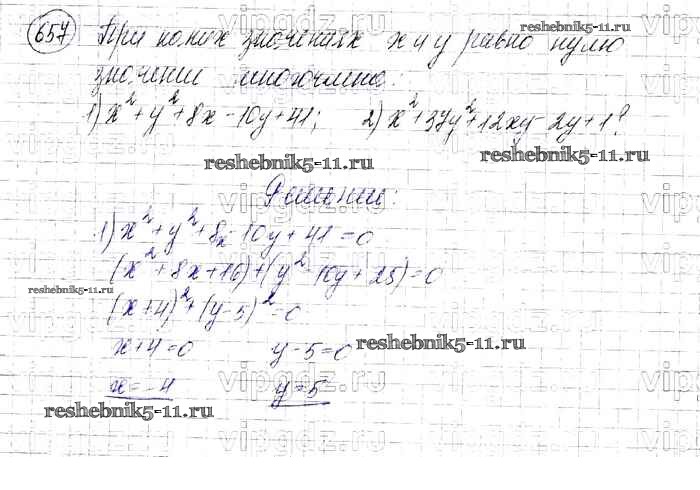 657 При каких значениях x и y равно нулю reshebnik5-11.ru
значение многочлена:
1) x²+y²+8x-10y+41; 2) x²+37y²+12xy-2y+1?
reshebnik5-11.ru reshebnik5-11.ru
Решение:
1) x²+y²+8x-10y+41=0
(x²+8x+16)+(y²-10y+25)=0
reshebnik5-11.ru
(x+4)²+(y-5)²=0
x+4=0 y-5=0 reshebnik5-11.ru
x=-4 y=5
reshebnik5-11.ru
vipgdz.ru